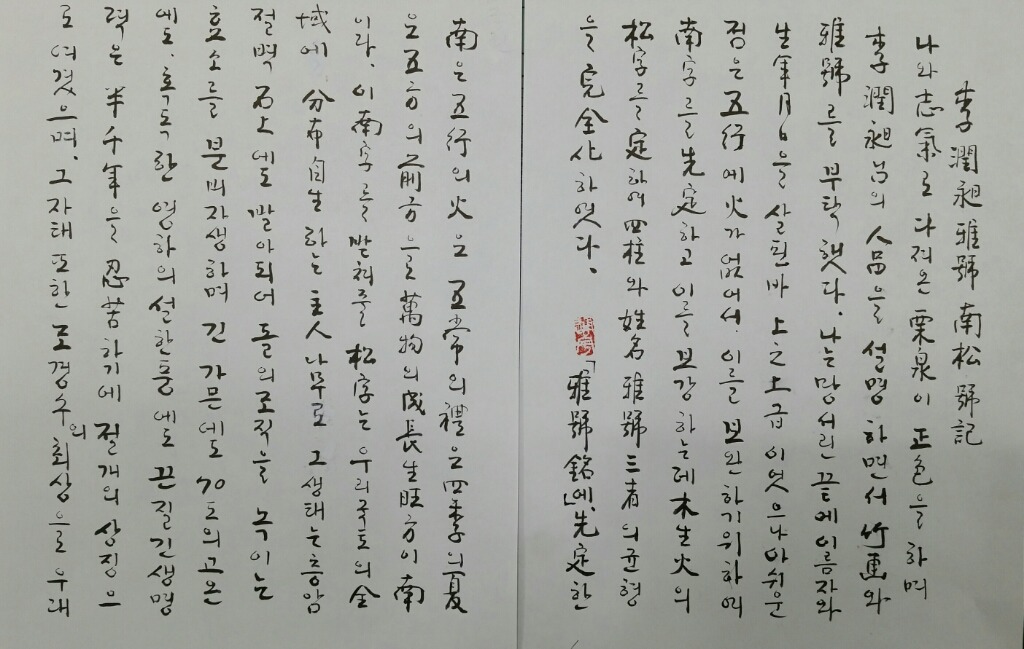 李潤昶雅號南松號記
나와 志氣로 다져온 栗泉이 正色을 하며
李潤昶님의 人品을 설명하면서 竹画와
雅號를 부탁했다. 나는 망서린 끝에 이름자와
生年月日을 살핀바 上之上급이엇으나 아쉬운
점은 五行에 火가 없어서. 이를 보완하기위하여
南字를 先定하고 이를 보강하는데 木生火의
松字를 定하여 四柱와 姓名 雅號 三者의 균형
을 完全化하엿다.
「雅號銘」에, 先定한
南은 五行의 火요 五常의 禮요 四季의 夏
요 五方의 前方으로 萬物의 成長生旺方이 南
이라. 이 南字를 받쳐줄 松字는 우리국토의 全
域에 分布自生하는 主人나무로 그 생태는 층암
절벽 石上에도 발아되어 돌의 조직을 녹이는
효소를 분비자생하며 긴 가믐에도 70도의 고온
에도. 혹독한 영하의 설한풍에도 끈질긴 생명
력은 半千年을 忍苦하기에 절개의 상징으
로 여겼으며. 그 자태 또한 조경수의 최상을로 우대